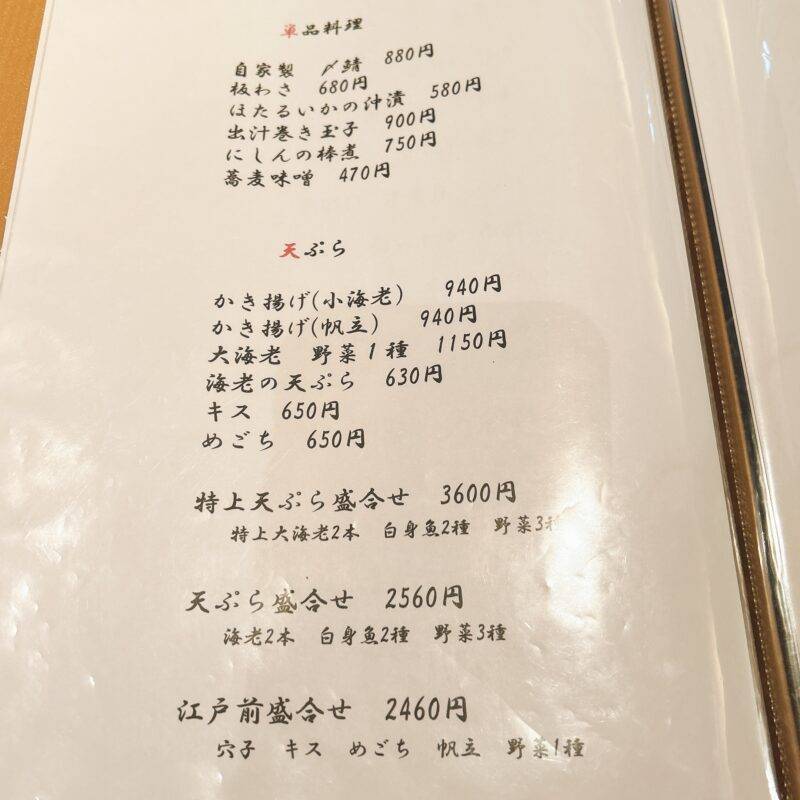 単品料理
自家製　〆鯖　880円
板わさ　680円
ほたるいかの沖漬　580円
出汁巻き玉子　900円
にしんの棒煮　750円
蕎麦味噌　470円
天ぷら
かき揚げ(小海老)　940円
かき揚げ(帆立)　940円
大海老　野菜1種　1150円
海老の天ぷら　630円
キス　650円
めごち　650円
特上天ぷら盛合せ　3600円
特上大海老2本　白身魚2種　野菜3種
天ぷら盛合せ　2560円
海老2本　白身魚2種　野菜3種
江戸前盛合せ　2460円
穴子　キス　めごち　帆立　野菜1種